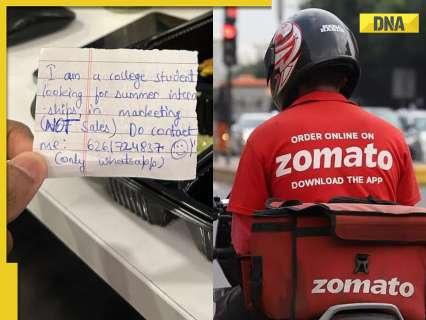 I am a college student
looking for summer intern
-ships in marketing
(NOT Sales) Do contact
me: 6261724837
(only whatsapp)
DNA
ORDER ONLINE ON
zomato
DOWNLOAD THE APP
zomato